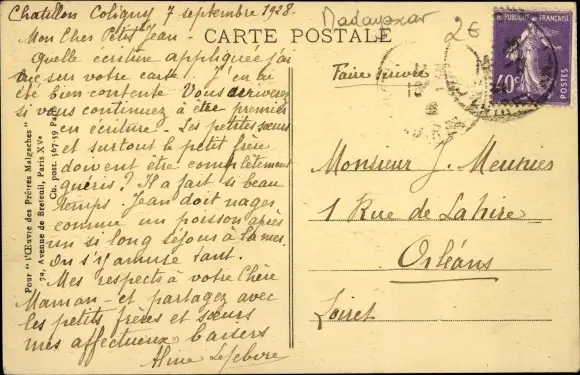 Chatillon Coligny 7 septembre 1928.
Mon Cher Petit Jean -
Quelle écriture appliquée j'ai
vue sur votre carte! J'en ai
été bien contente Vous arriverez
si vous continuez à être premier
en écriture. Les petites sœurs
et surtout le petit frère
doivent être complètement
guéris? Il a fait si beau
temps. Jean doit nager
comme un poisson après
un si long séjour à la mer.
On s'y amuse tant.
Mes respects à votre Chère
Maman - et partagez avec
les petits frères et sœurs
mes affectueux baisers
Aline Lefebvre
Pour "l'Œuvre des Prêtres Malgaches"
39, Avenue de Breteuil, Paris XVe
Ch. post. 567-19 Paris
CARTE POSTALE
Madagascar
26
Faire suivre
REPUBLIQUE FRANÇAISE
40c
POSTES
Monsieur J. Meunies
1 Rue de Lahire
Orléans
Loiret